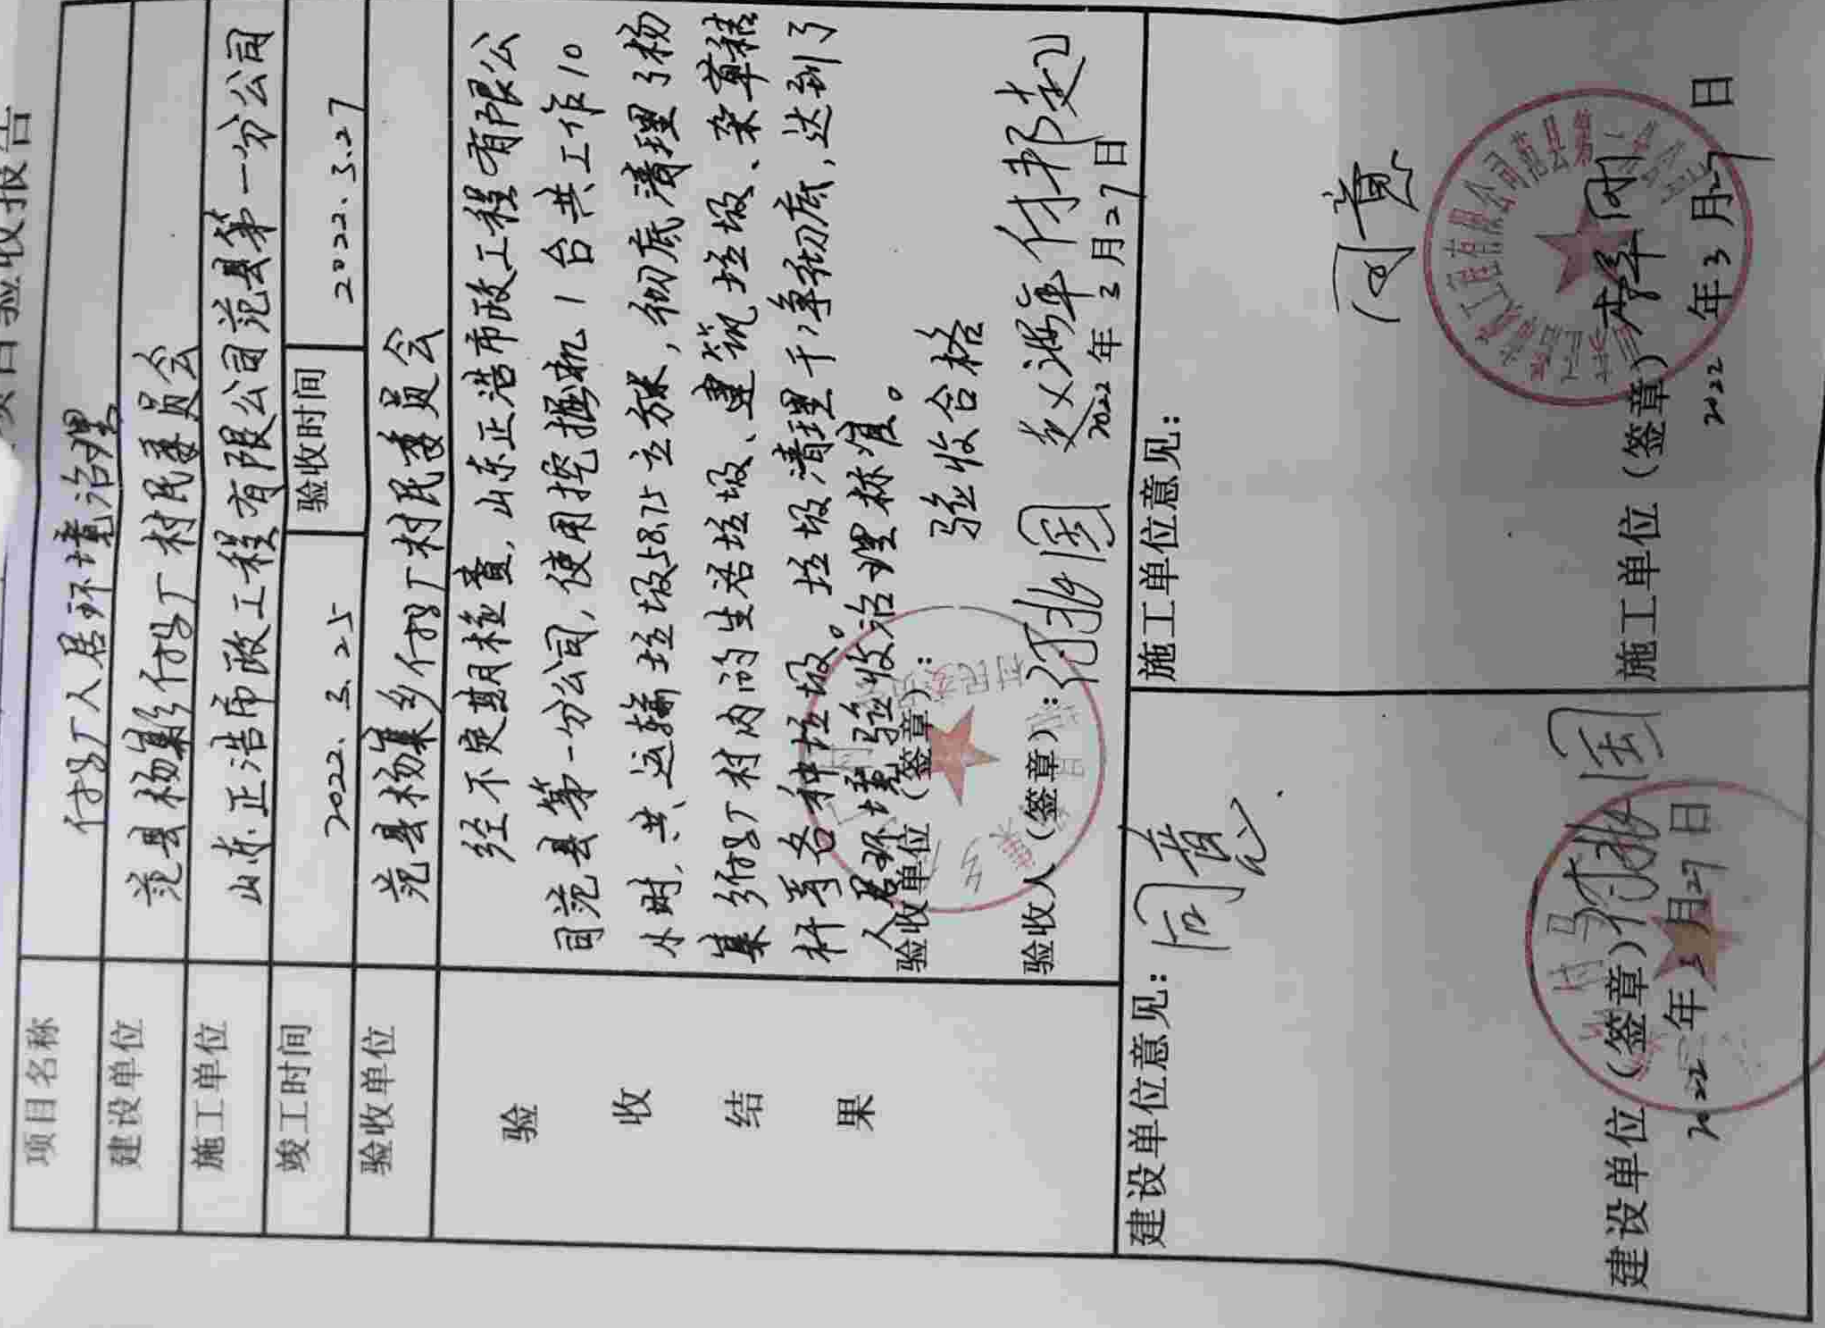 项目验收报告
项目名称 付楼厂人居环境治理
建设单位 范县杨集乡付楼厂村民委员会
施工单位 山东正浩市政工程有限公司范县第一分公司
竣工时间 2022.3.25 验收时间 2022.3.27
验收单位 范县杨集乡付楼厂村民委员会
验收结果
经不定期检查,山东正浩市政工程有限公
司范县第一分公司,使用挖掘机1台共工作10
小时,共运输垃圾58.75立方米,彻底清理了杨
集乡付楼厂村内的生活垃圾、建筑垃圾、杂草秸
秆等各种垃圾。垃圾清理干净彻底,达到了
人居环境验收治理标准。
验收单位(签章): 验收合格
验收人(签章):
2022年3月27日
建设单位意见:
同意
建设单位(签章)
2022年3月27日
施工单位意见:
同意
施工单位(签章)
2022年3月27日